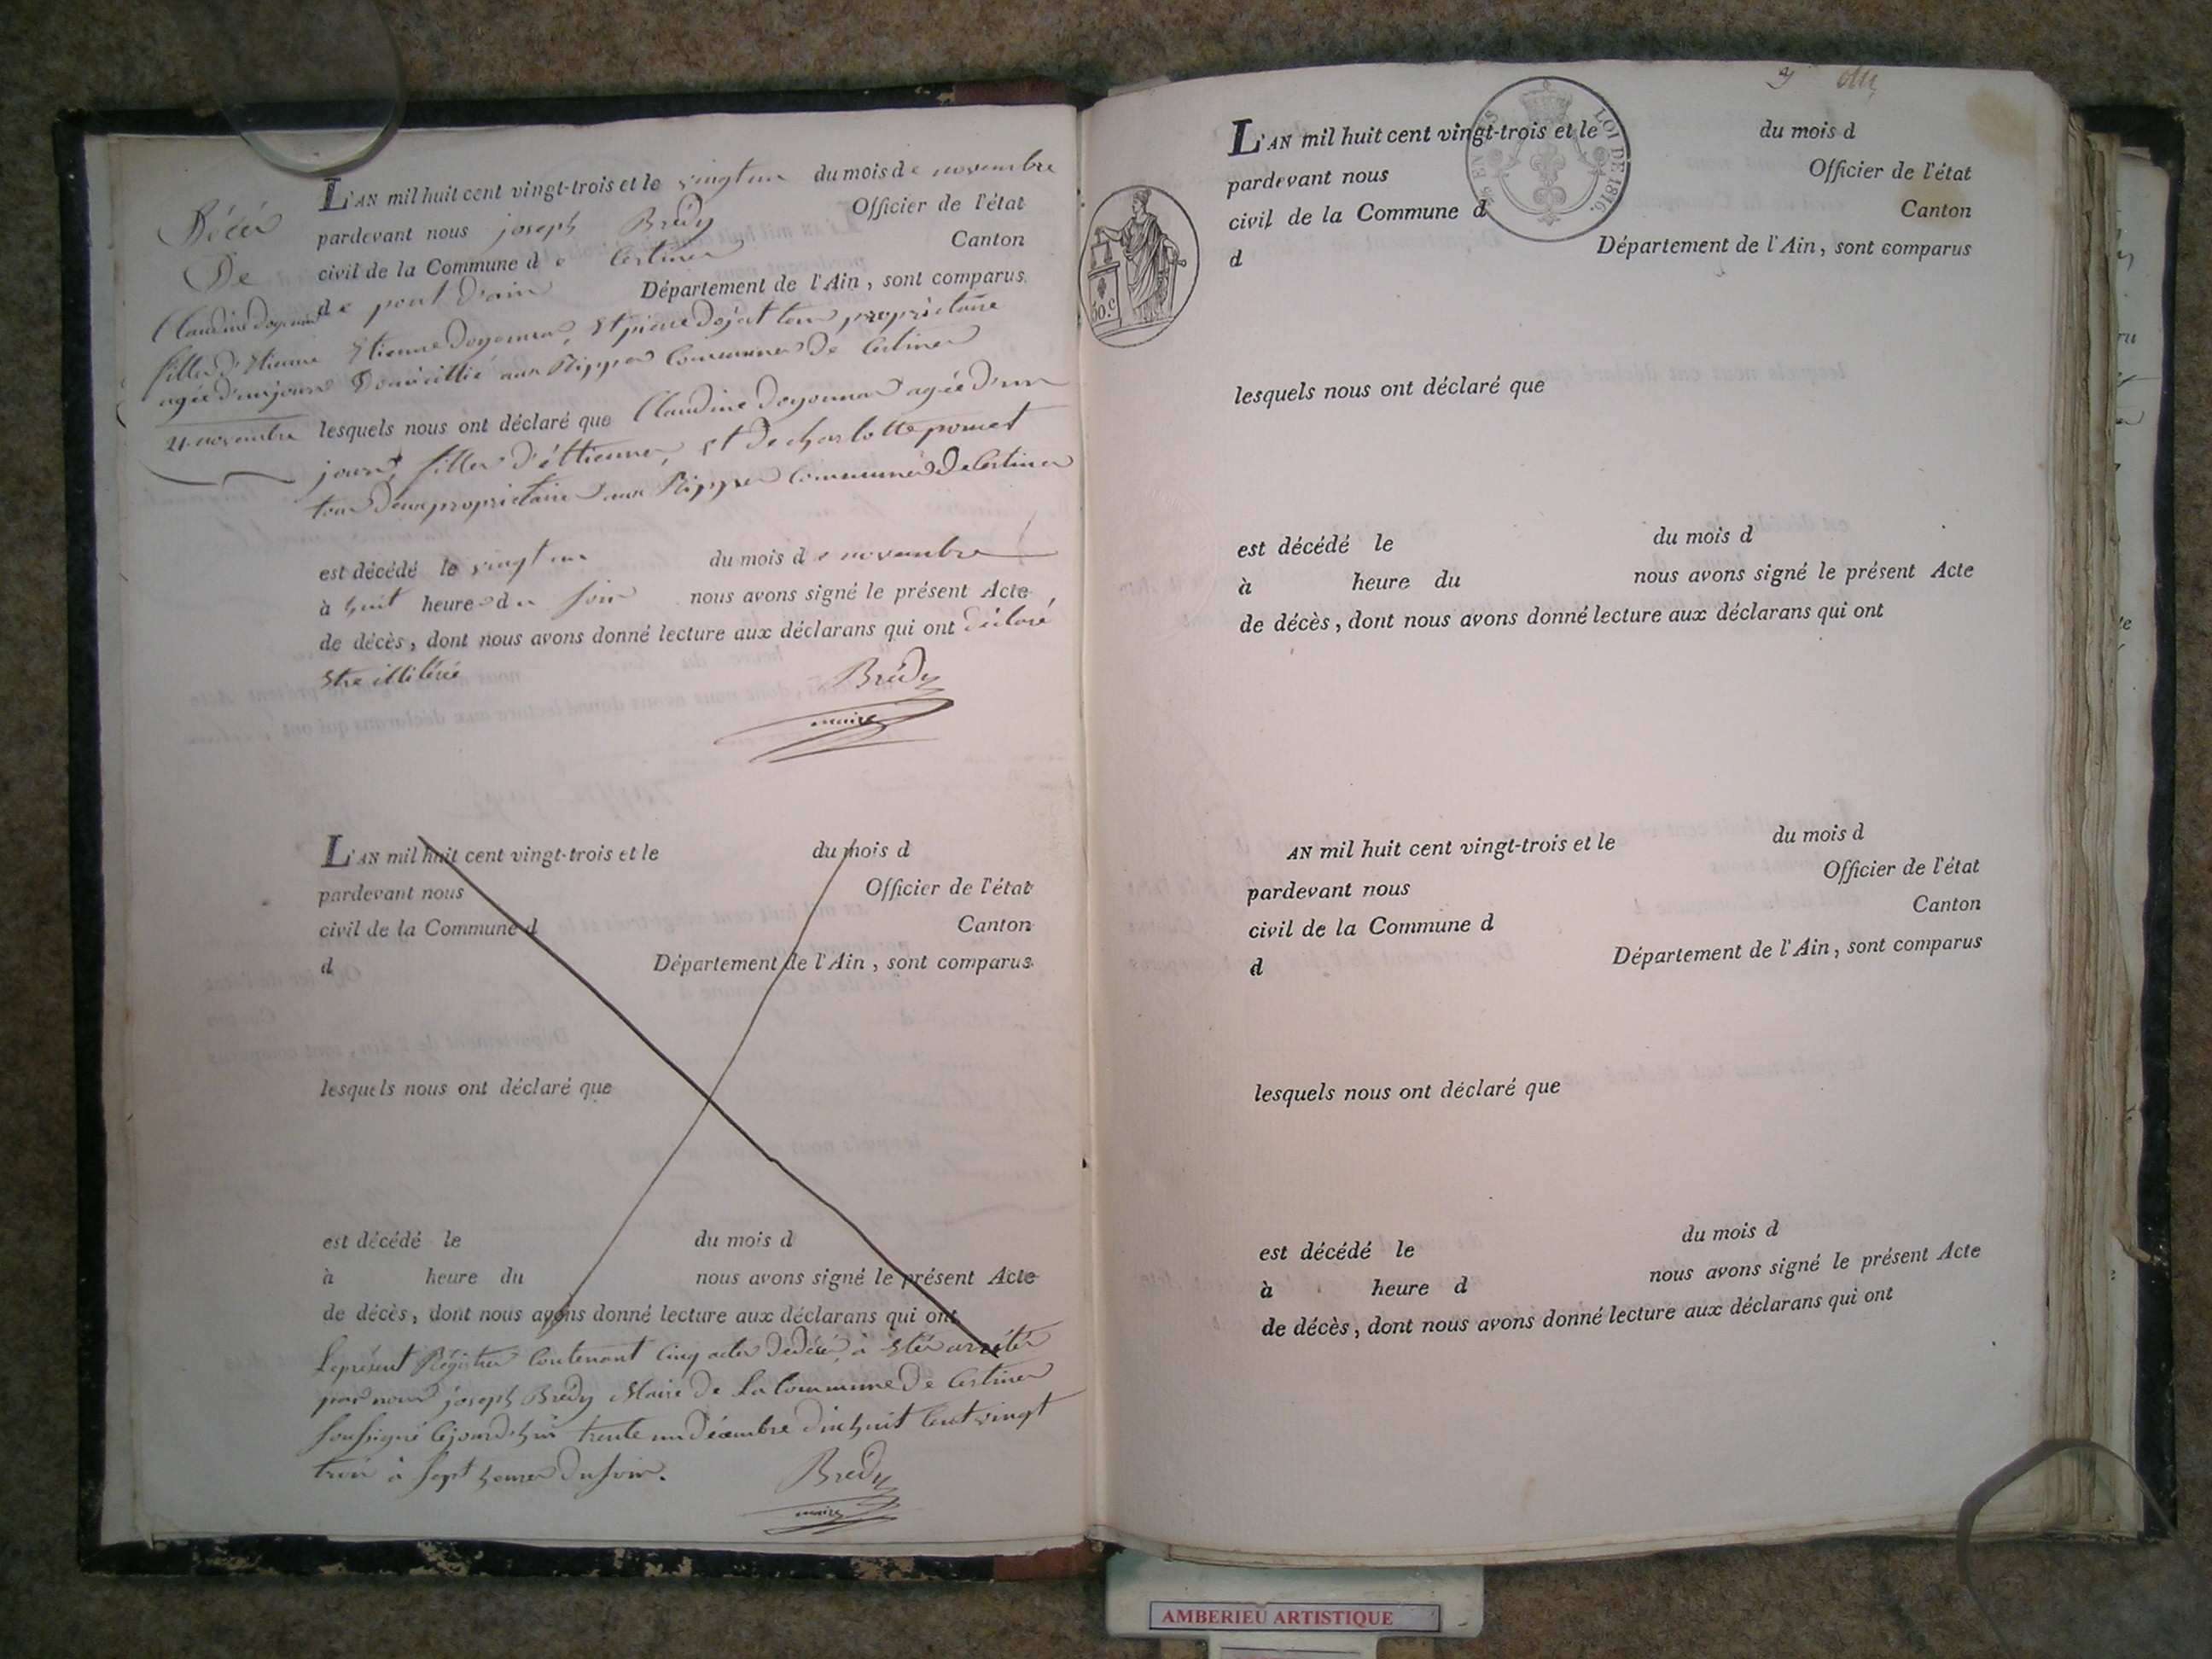 Décès
De
Claudine doyonnax
fille d'Etienne
agée d'un jours
21 novembre
L'AN mil huit cent vingt-trois et le vingt un du mois de novembre
pardevant nous joseph Bredy Officier de l'état
civil de la Commune de Certines Canton
de pont d'ain Département de l'Ain, sont comparus
Etienne doyonnax, et pierre tous propriétaire
Domicillié aux Rippes Commune De Certines
lesquels nous ont déclaré que Claudine doyonnax agée d'un
jours, fille d'éttienne, et de charlotte pomet
tous deux proprietaire aux Rippes Commune De Certines
est décédé le vingt un du mois de novembre
à huit heures du soir nous avons signé le présent Acte
de décès, dont nous avons donné lecture aux déclarans qui ont déclaré
Etre illitéré Brédy
maire
L'AN mil huit cent vingt-trois et le du mois d
pardevant nous Officier de l'état
civil de la Commune d Canton
d Département de l'Ain, sont comparus
lesquels nous ont déclaré que
est décédé le du mois d
à heure du nous avons signé le présent Acte
de décès, dont nous avons donné lecture aux déclarans qui ont
Le présent Régistre Contenant Cinq actes De décès, à Eté arrêté
par nous joseph Bredy Maire De La Commune De Certines
soussigné Cejourd'hui trente un Décembre dix huit Cent vingt
trois à sept heures Du soir. Bredy
maire
L'AN mil huit cent vingt-trois et le du mois d
pardevant nous Officier de l'état
civil de la Commune d Canton
d Département de l'Ain, sont comparus
LOI DE 1816.
50.c
lesquels nous ont déclaré que
est décédé le du mois d
à heure du nous avons signé le présent Acte
de décès, dont nous avons donné lecture aux déclarans qui ont
AN mil huit cent vingt-trois et le du mois d
pardevant nous Officier de l'état
civil de la Commune d Canton
d Département de l'Ain, sont comparus
lesquels nous ont déclaré que
est décédé le du mois d
à heure d nous avons signé le présent Acte
de décès, dont nous avons donné lecture aux déclarans qui ont
AMBERIEU ARTISTIQUE